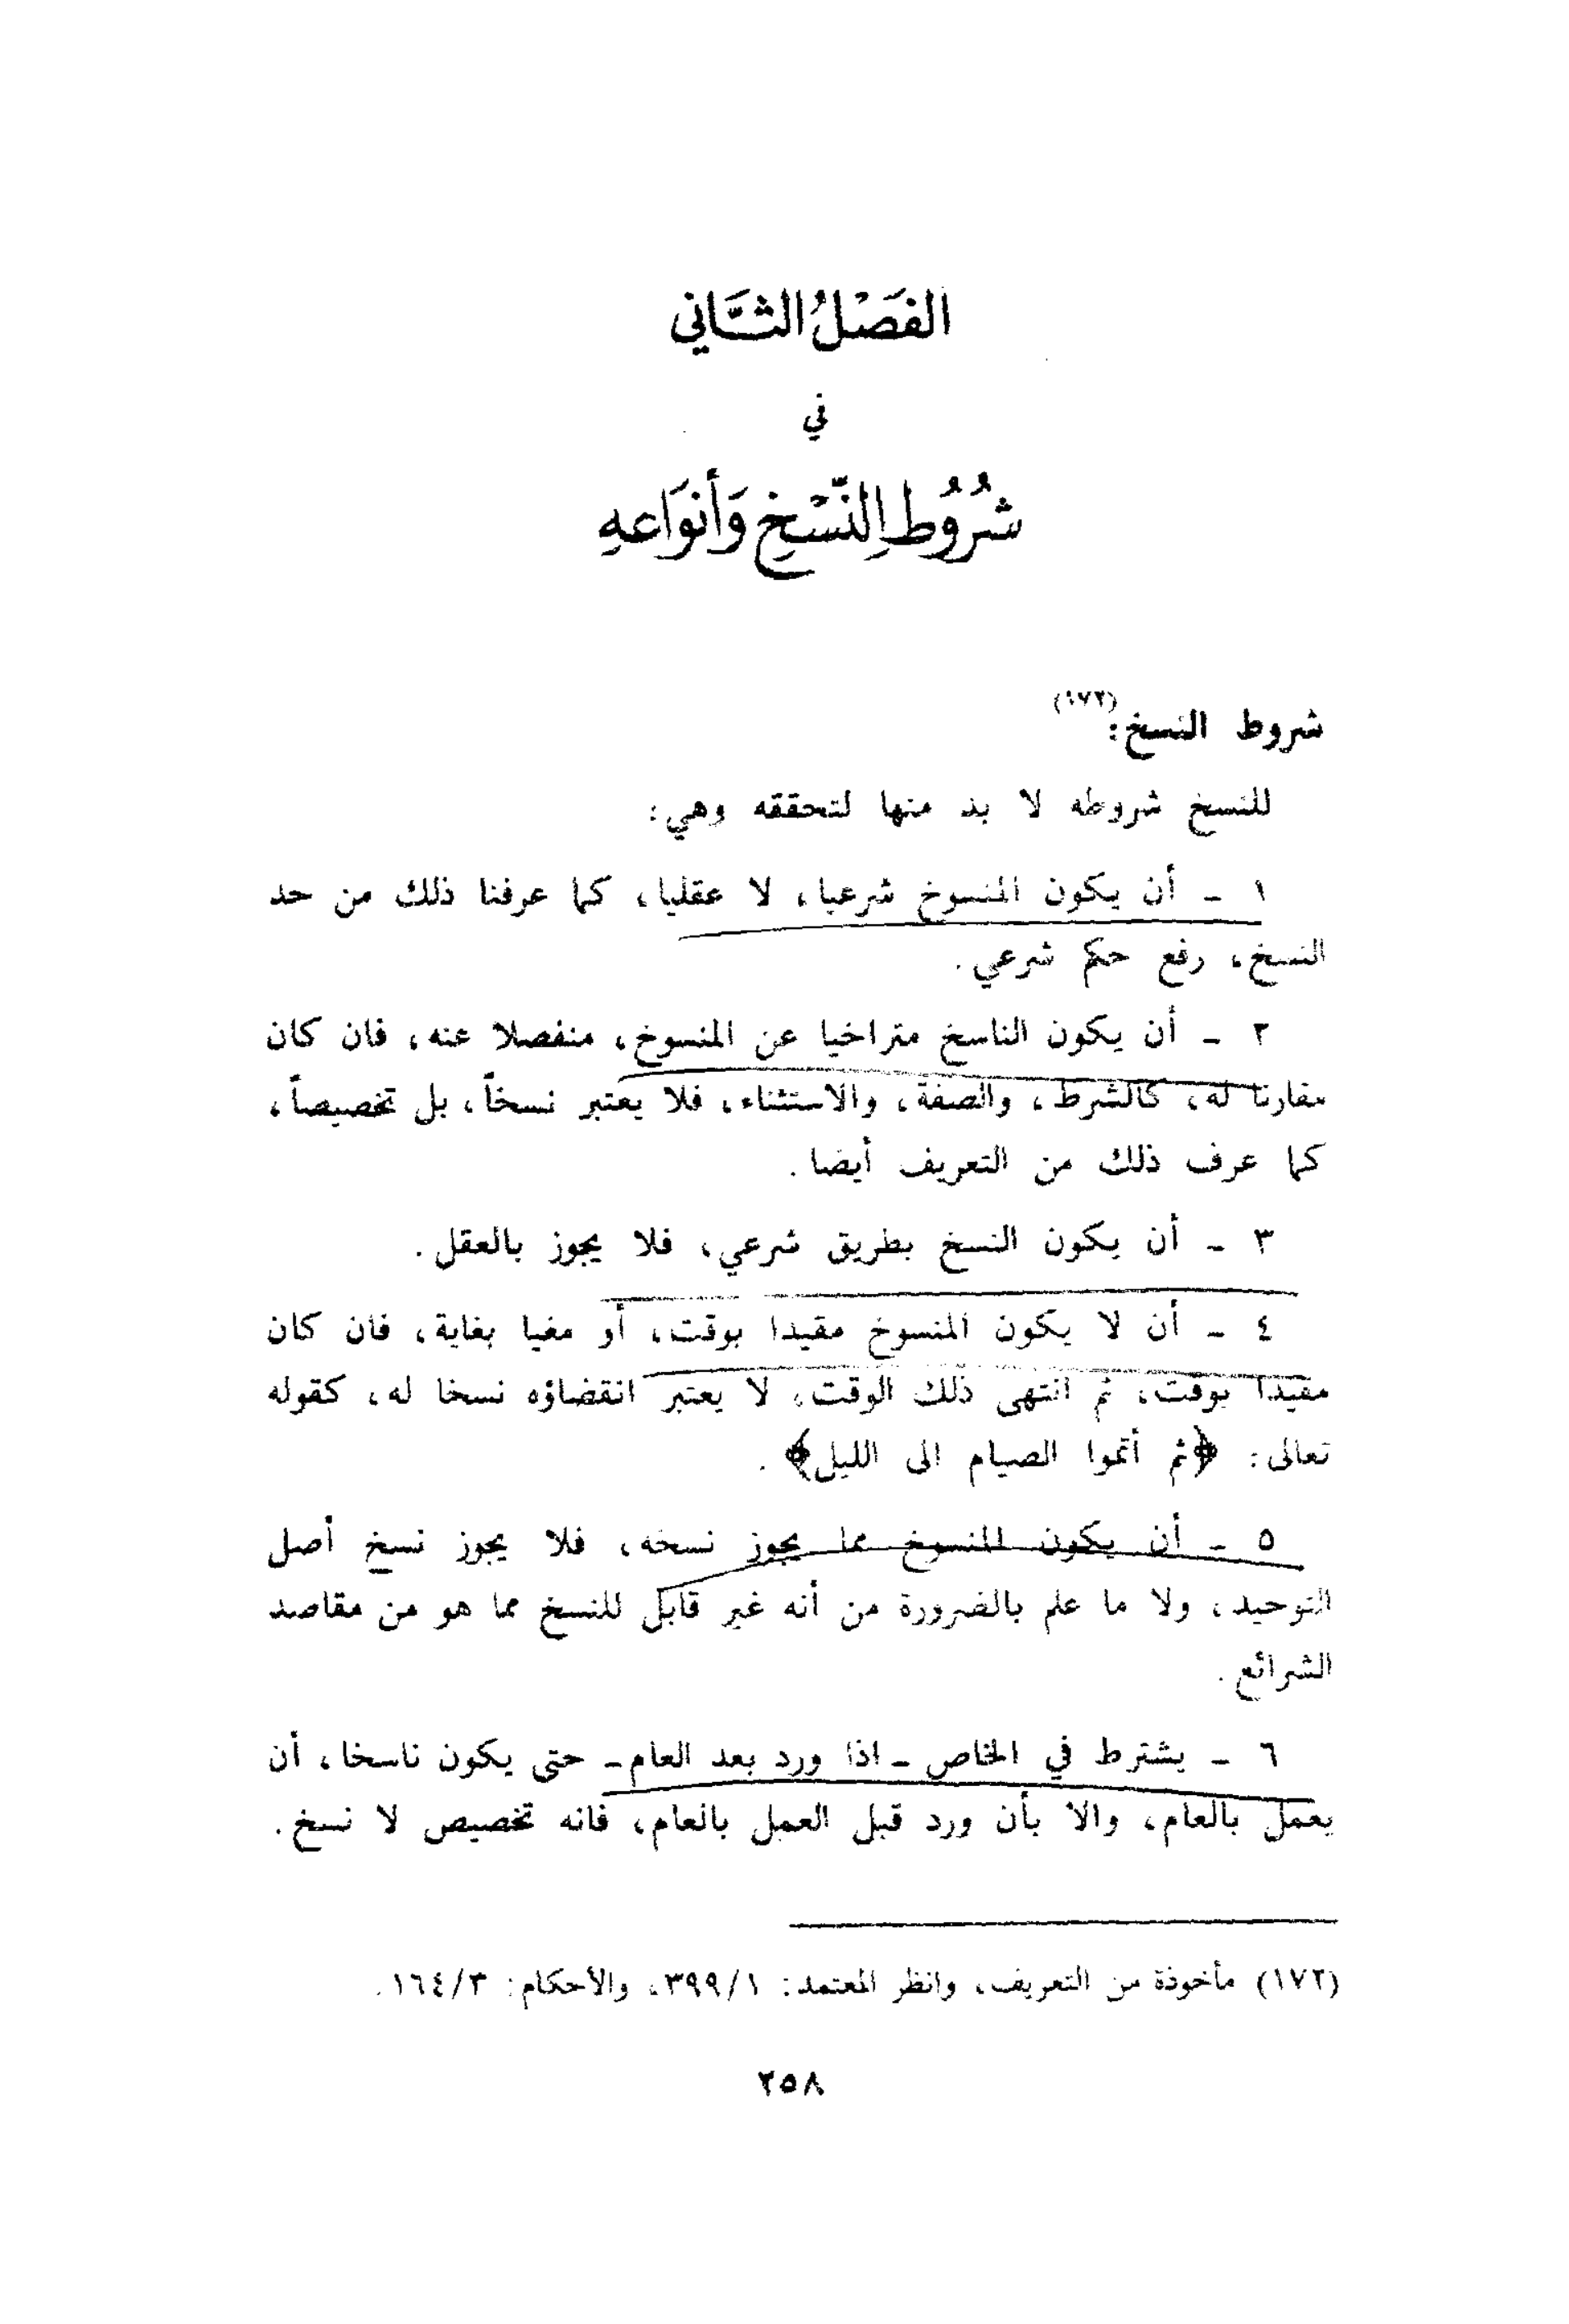 الفَصْلُ الثَّانِي
في
شُرُوطِ النَّسْخِ وَأنوَاعهِ
شروط النسخ:(١٧٢)
للنسخ شروطه لا بد منها لتحققه وهي:
١ ـ أن يكون المنسوخ شرعيا، لا عقليا، كما عرفنا ذلك من حد
النسخ، رفع حكم شرعي.
٢ ـ أن يكون الناسخ متراخيا عن المنسوخ، منفصلا عنه، فان كان
مقارنا له، كالشرط، والصفة، والاستثناء، فلا يعتبر نسخاً، بل تخصيصاً،
كما عرف ذلك من التعريف أيضا.
٣ ـ أن يكون النسخ بطريق شرعي، فلا يجوز بالعقل.
٤ ـ أن لا يكون المنسوخ مقيدا بوقت، أو مغيا بغاية، فان كان
مقيدا بوقت، ثم انتهى ذلك الوقت، لا يعتبر انقضاؤه نسخا له، كقوله
تعالى: ﴿ثم أتموا الصيام الى الليل﴾.
٥ ـ أن يكون المنسوخ مما يجوز نسخه، فلا يجوز نسخ أصل
التوحيد، ولا ما علم بالضرورة من أنه غير قابل للنسخ مما هو من مقاصد
الشرائع.
٦ ـ يشترط في الخاص ـ اذا ورد بعد العام ـ حتى يكون ناسخا، أن
يعمل بالعام، والا بأن ورد قبل العمل بالعام، فانه تخصيص لا نسخ.
(١٧٢) مأخوذة من التعريف، وانظر المعتمد: ٣٩٩/١، والأحكام: ١٦٤/٣.
٢٥٨